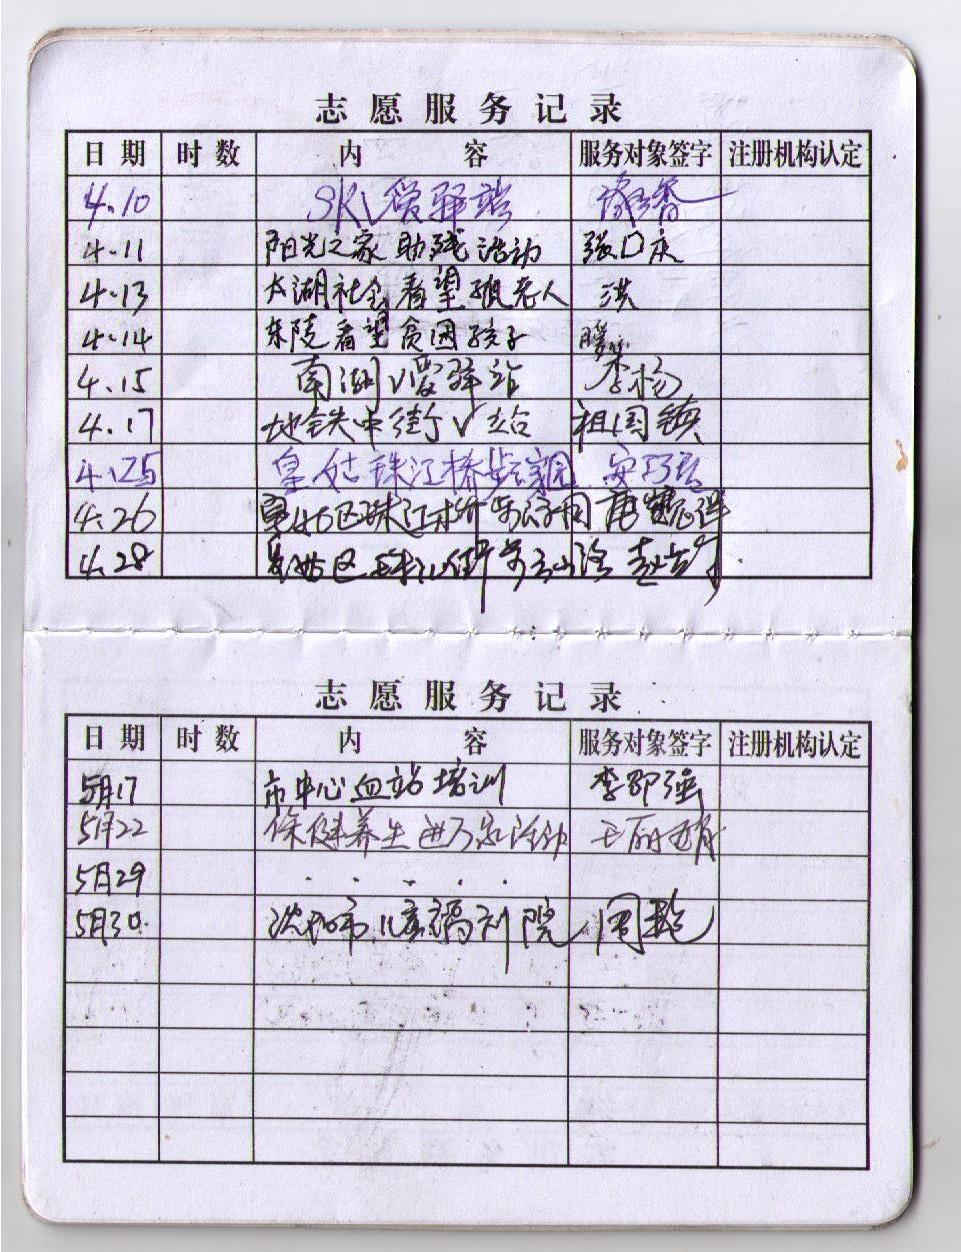 志愿服务记录
日期 时数 内容 服务对象签字 注册机构认定
4.10 SK V爱驿站
4.11 阳光之家助残活动 张口庆
4.13 大湖社会看望孤老人 洪
4.14 东陵看望贫困孩子
4.15 南湖V爱驿站 李杨
4.17 地铁中街V站 祖国镇
4.25 皇姑珠江桥
4.26 皇姑区珠江 唐
4.28 皇姑区珠江街 赵
志愿服务记录
日期 时数 内容 服务对象签字 注册机构认定
5月17 市中心血站培训 李邵强
5月22 保健养生进万家活动 王丽娟
5月29 · · · · ·
5月30. 沈阳市儿童福利院 周艳